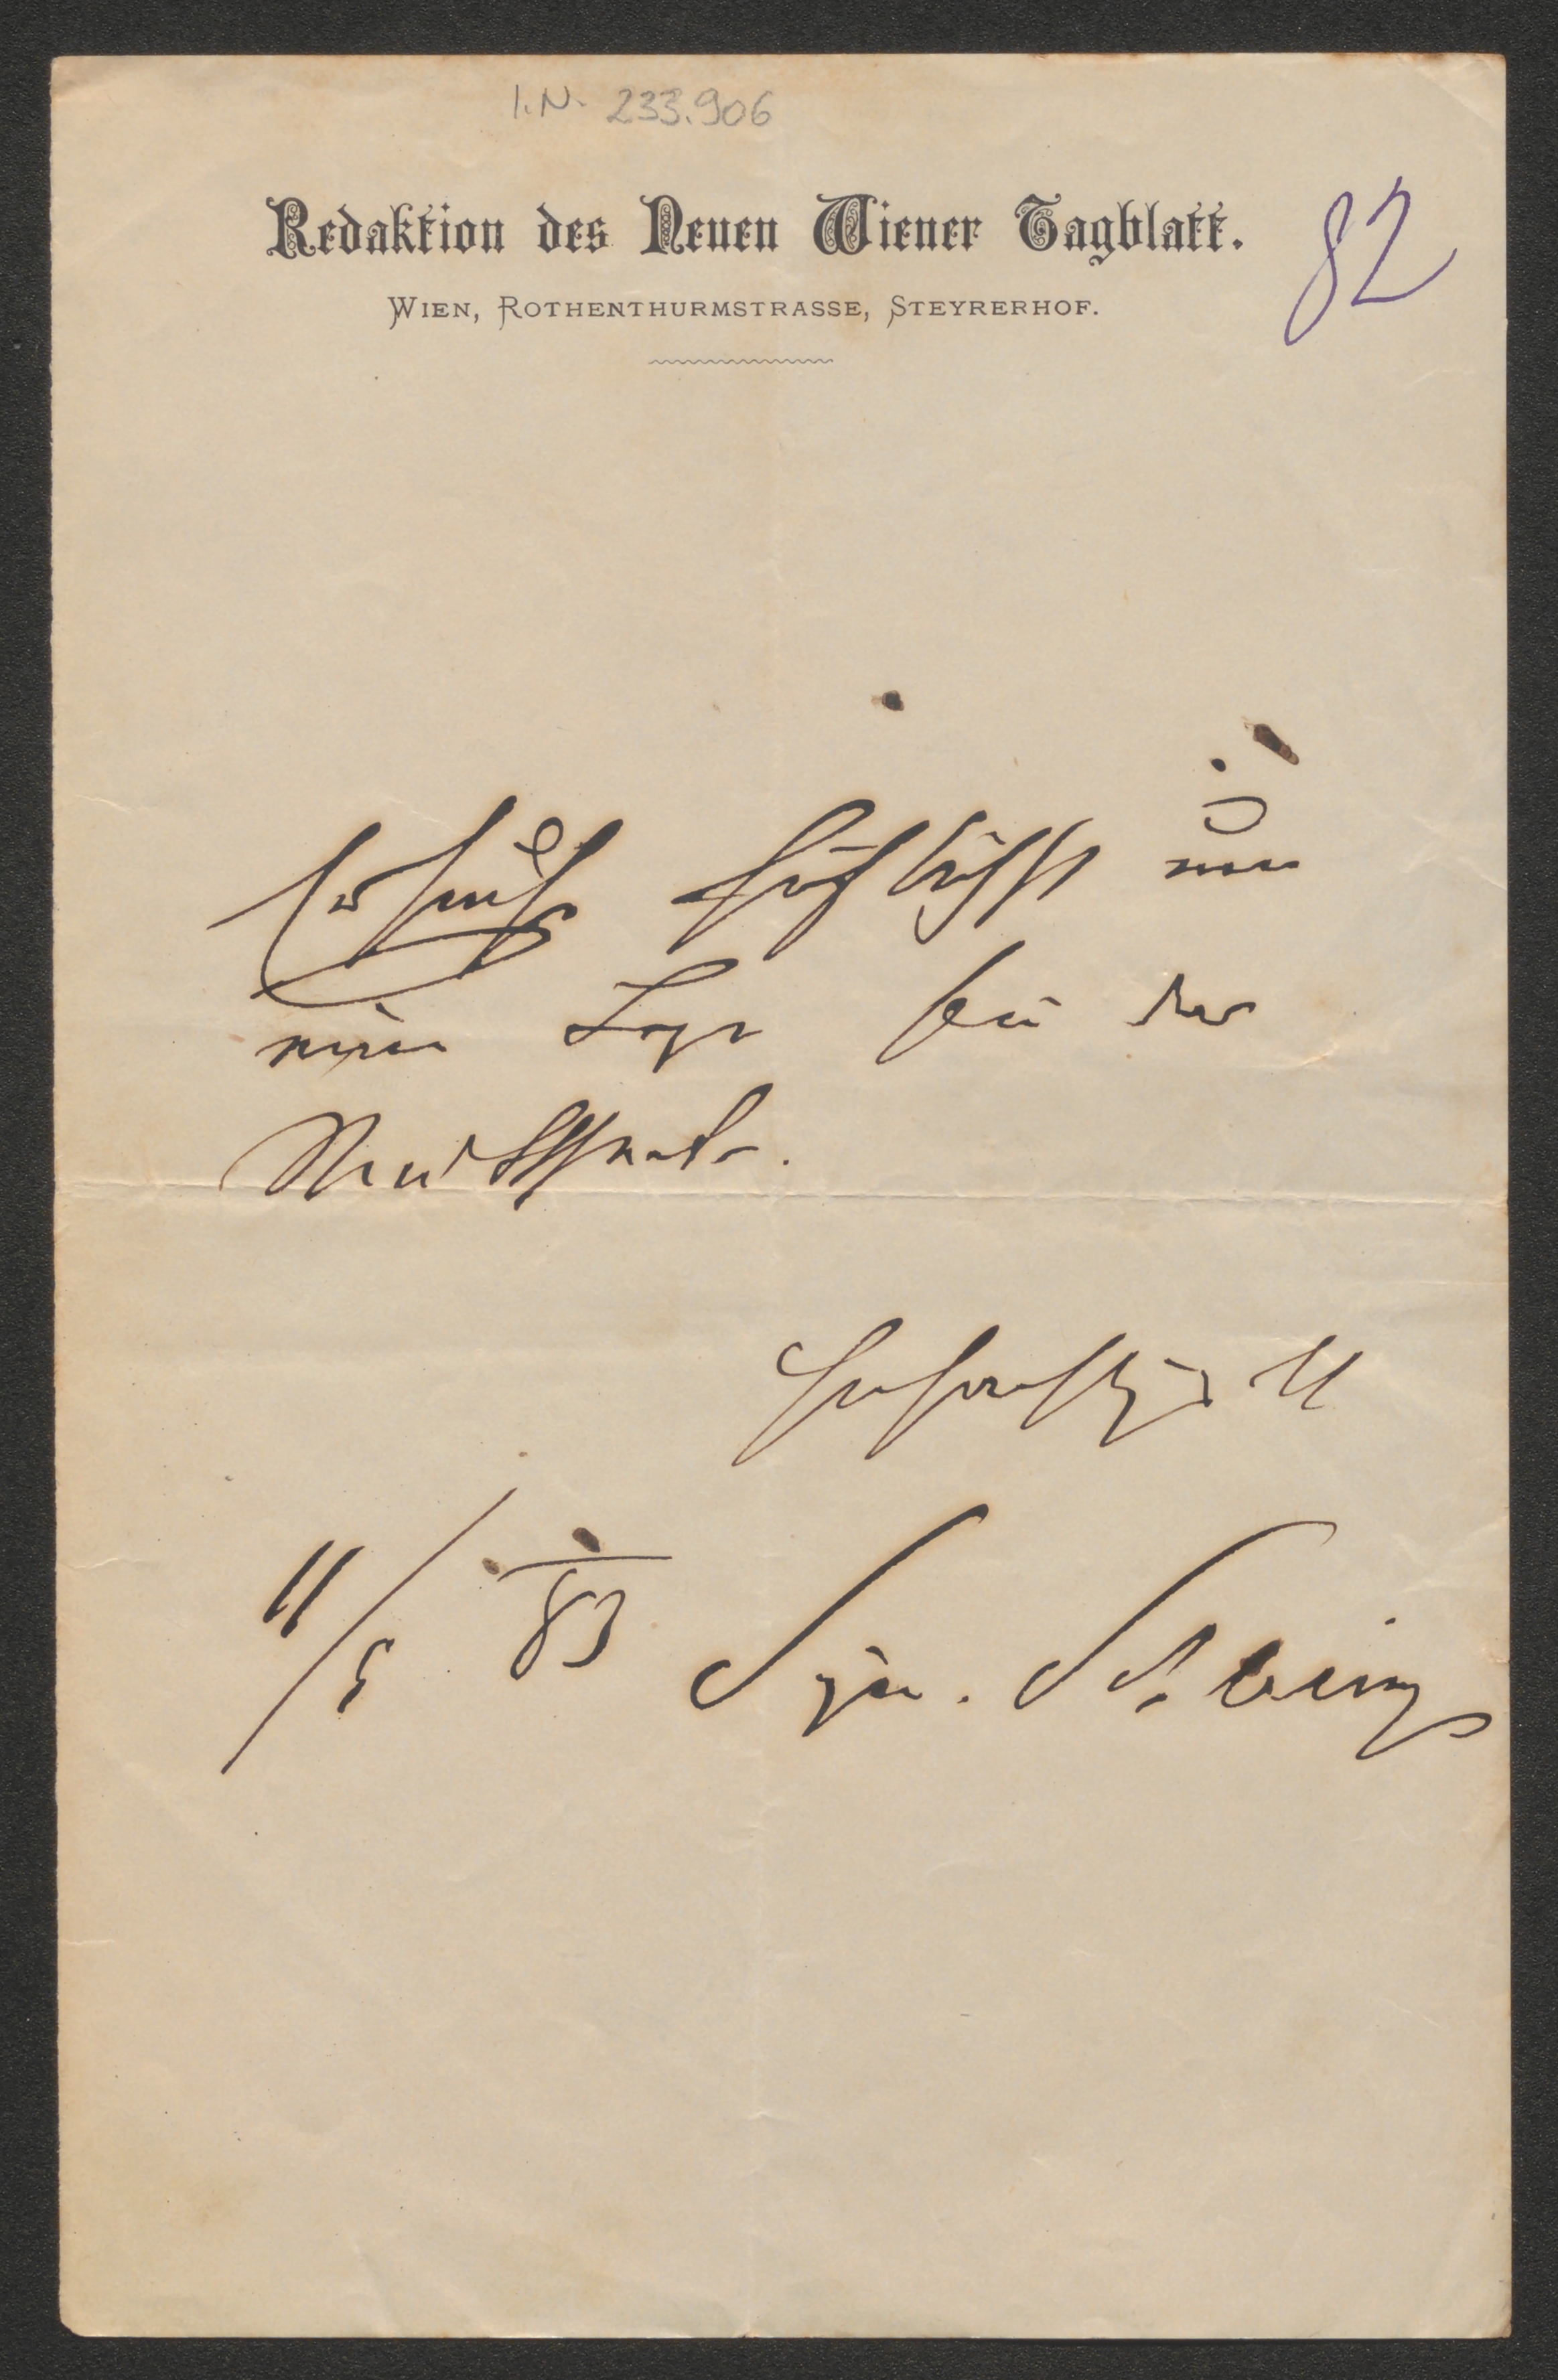 I.N. 233.906
Redaktion des Neuen Wiener Tagblatt.
82
WIEN, ROTHENTHURMSTRASSE, STEYRERHOF.
Ersuche höflichst um
eine Loge für das
Hochachtungsvoll
11/5 83 Sigm.